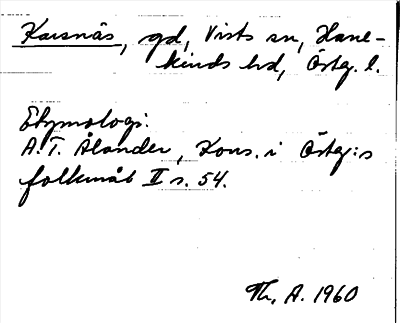 Karsnäs, gd, Vists sn, Hane-
kinds hd, Österg. l.
Etymologi:
A. T. Ålander, Kons. i Österg:s
folkmål II s. 54.
Th, A. 1960